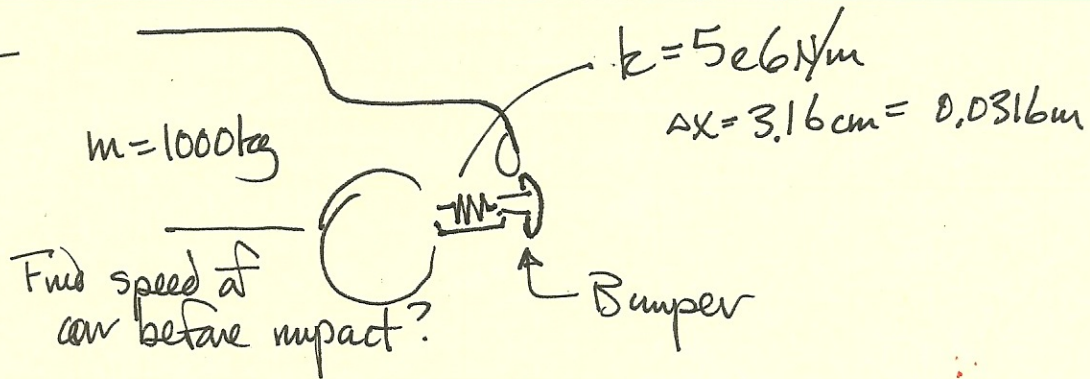 k = 5e6 N/m
Δx = 3.16 cm = 0.0316m
m = 1000kg
Find speed of
car before impact?
Bumper